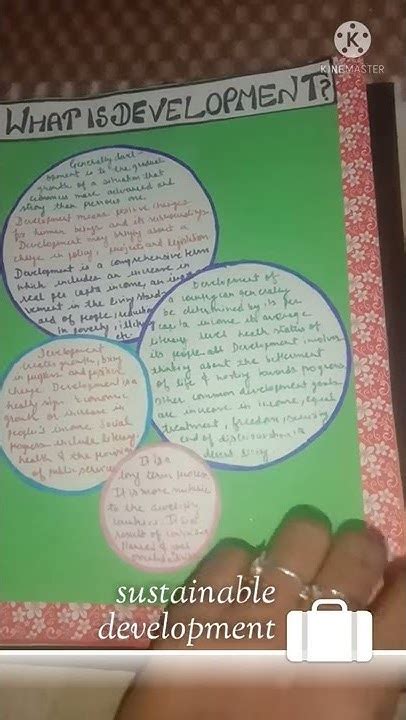 KINEMASTER
WHAT IS DEVELOPMENT?
Generally devel-
opment is to the gradual
growth of a situation that
becomes more advanced and
strong than previous one.
Development means positive changes
for human beings and its surroundings
Development may bring about a
change in policy, projects and legislation
Development is a comprehensive term
which includes an increase in
real per capita income, an improv
vement in the living stand
ard of people, reduction
in poverty, illitera
etc.
Development of
a country can generally
be determined by its per
capita income its average
literacy level health status of
its people. all Development involves
thinking about the betterment
of life & working towards progress
other common development goals
are increase in income, equal
treatment, freedom, security
end of discrimination &
decent living
Development
creates growth, brings
in progress and positive
change. Development is a
healthy sign. Economic
growth or increase in
people's income. Social
progress include literacy,
health & the provision
of public services
It is a
long term process
It is more
to the developing
countries. It is a
result of
sustainable
development